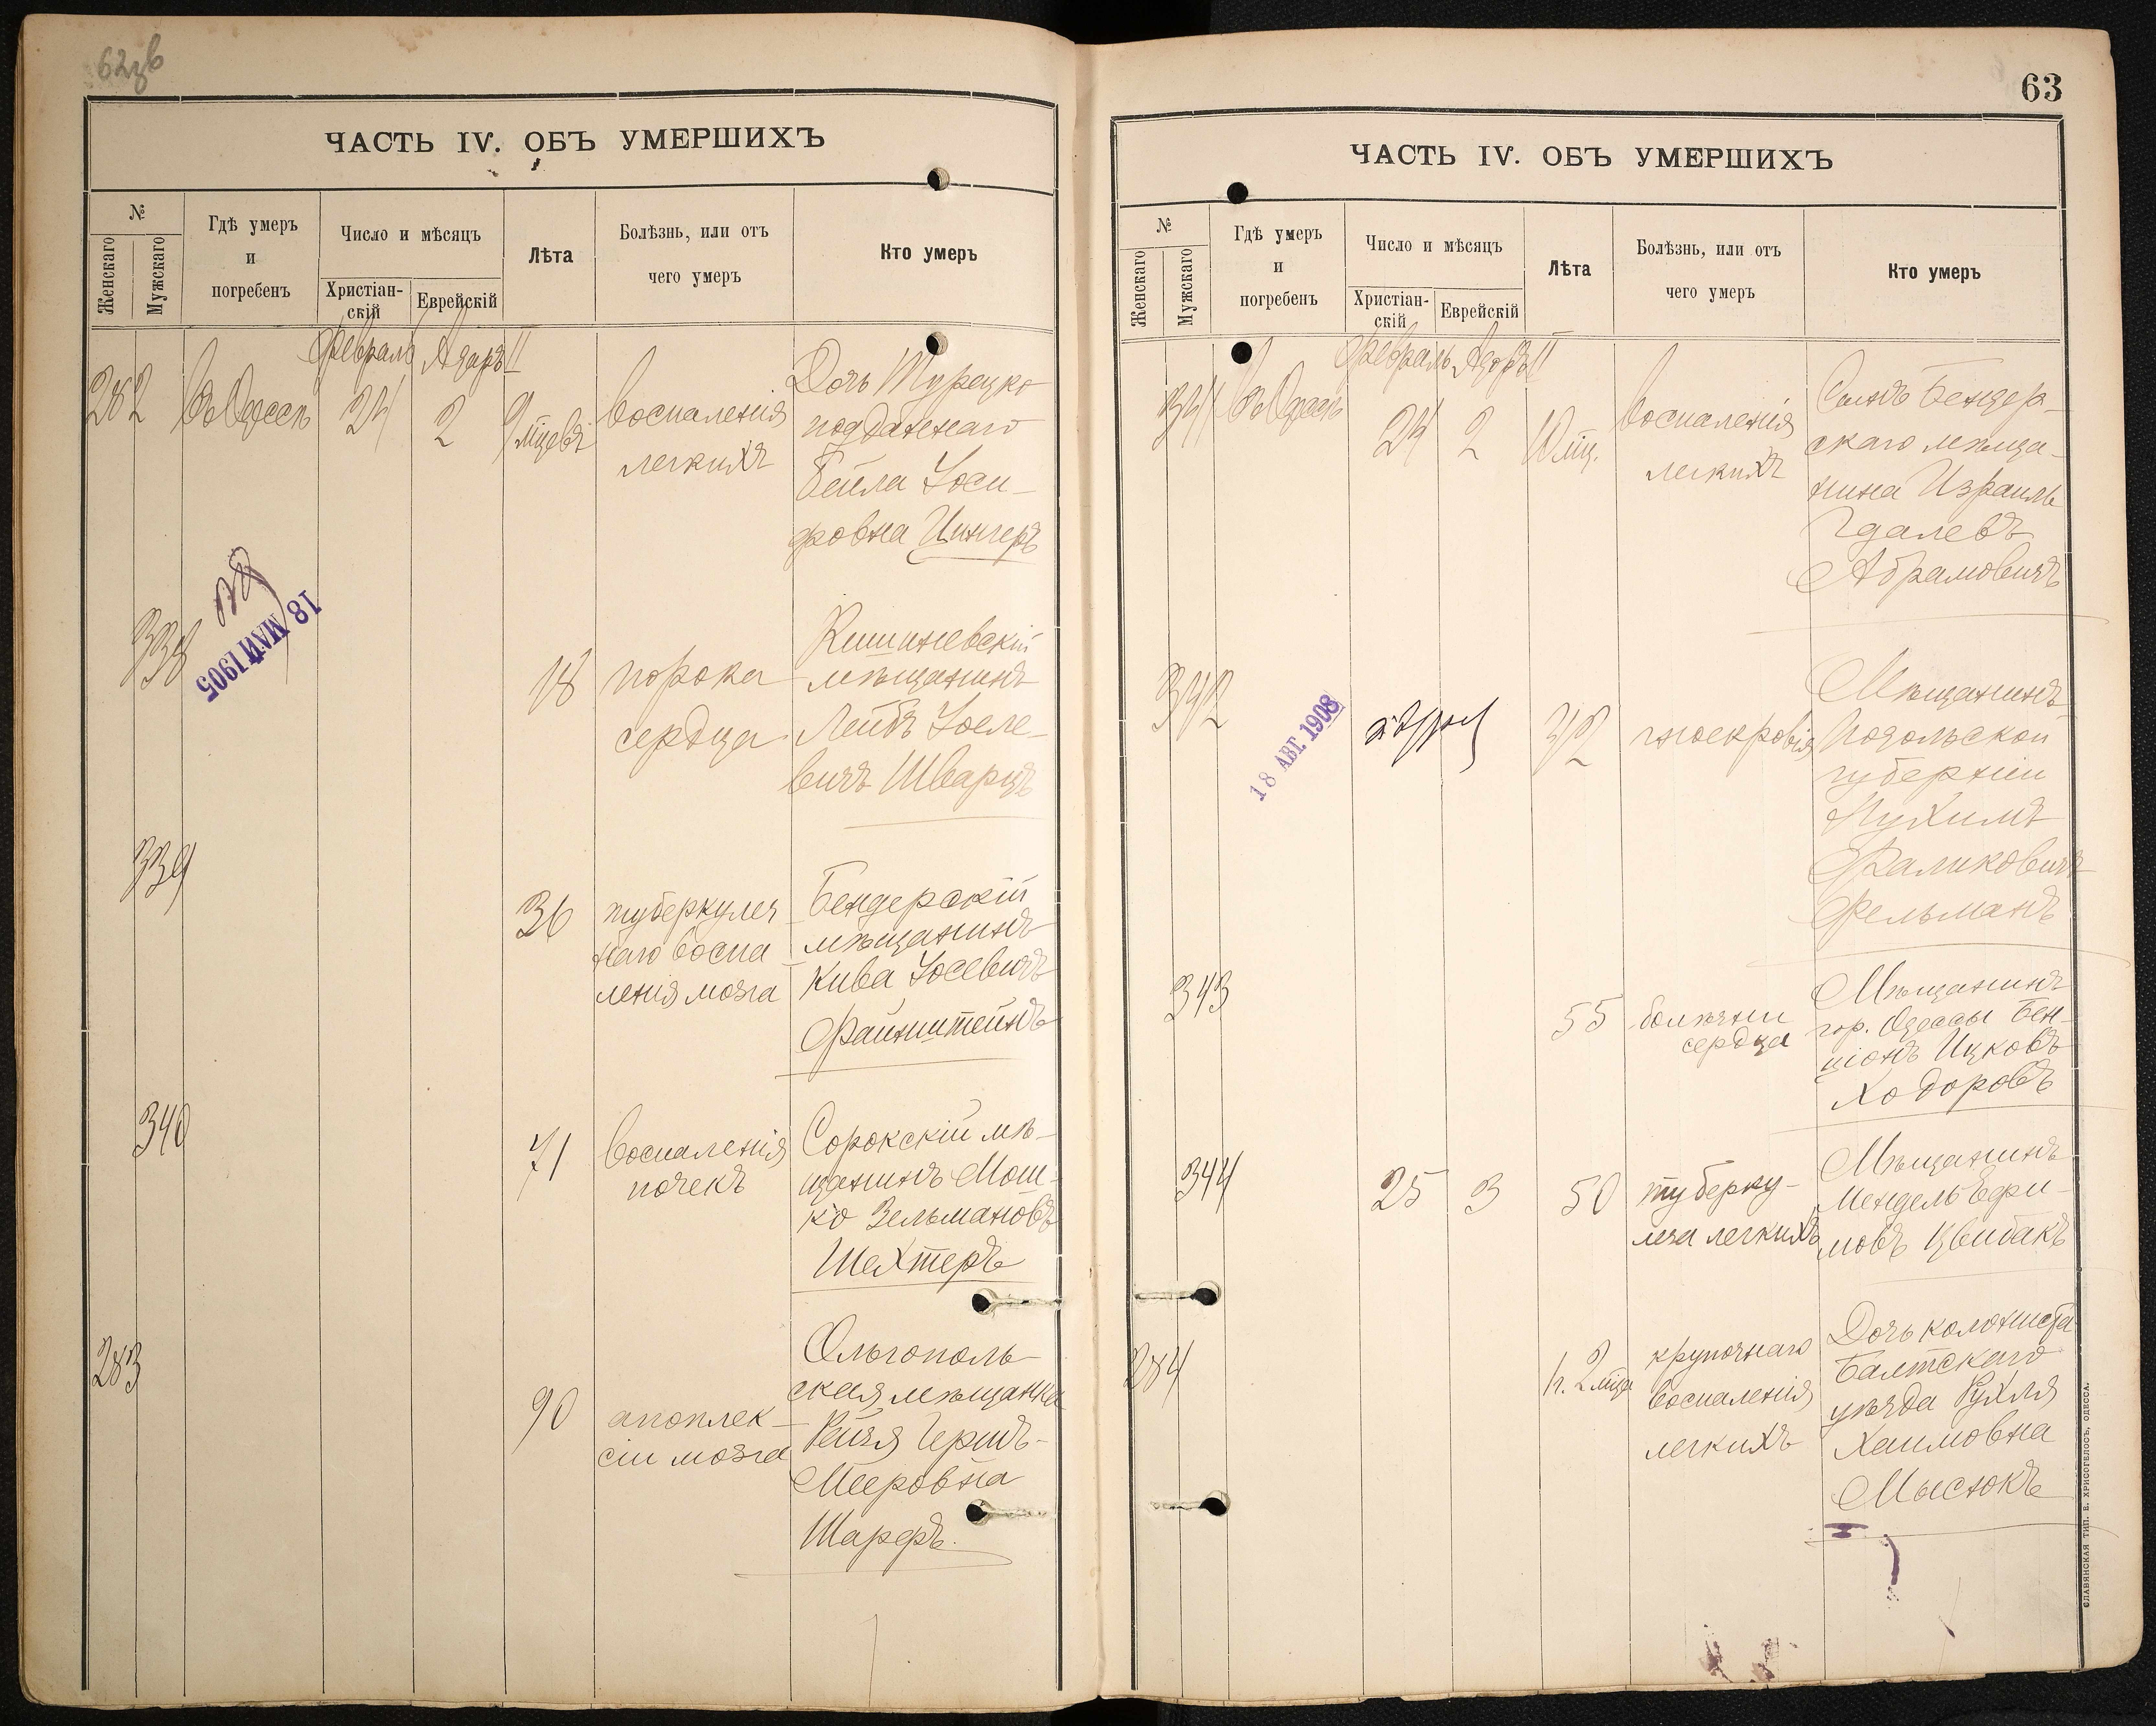 ЧАСТЬ IV. ОБЪ УМЕРШИХЪ
№
Женскаго
Мужскаго
Гдѣ умеръ
и
погребенъ
Число и мѣсяцъ
Христіан-
скій
Еврейскій
Лѣта
Болѣзнь, или отъ
чего умеръ
Кто умеръ
Февраль Адаръ II
282 въ Одессѣ 24 2 9 мцевъ
воспаленія
легкихъ
Дочь Турецко
подданнаго
Бейла Іоси-
фовна Цингеръ
18 МАЙ 1905
338
18
порока
сердца
Кишиневскій
мѣщанинъ
Лейбъ Іосле-
вичъ Шварцъ
339
36
туберкулез
наго воспа
ленія мозга
Бендерскій
мѣщанинъ
Кива Іосевичъ
Файнштейнъ
340
71
воспаленія
почекъ
Сорокскій мѣ-
щанинъ Мош-
ко Зельмановъ
Шехтеръ
283
90
апоплек-
сіи мозга
Ольгополь-
ская мѣщанка
Рейзя Герш-
Мееровна
Шарфъ.
63
ЧАСТЬ IV. ОБЪ УМЕРШИХЪ
№
Женскаго
Мужскаго
Гдѣ умеръ
и
погребенъ
Число и мѣсяцъ
Христіан-
скій
Еврейскій
Лѣта
Болѣзнь, или отъ
чего умеръ
Кто умеръ
Февраль Адаръ II
341 въ Одессѣ 24 2 10 мц.
воспаленія
легкихъ
Сынъ Бендер-
скаго мѣща-
нина Израиль
Гдалевъ
Абрамовичъ
18 АВГ. 1908
342
42
гноекровія
Мѣщанинъ
Подольской
губерніи
Нухимъ
Фаликовичъ
Фельманъ
343
55
болѣзни
сердца
Мѣщанинъ
гор. Одессы Бен-
ціонъ Ицковъ
Ходоровъ
344 25 3 50
туберку-
леза легкихъ
Мѣщанинъ
Мендель Ефи-
мовъ Цвибакъ
284
2 мца
крупознаго
воспаленія
легкихъ
Дочь колониста
Балтскаго
уѣзда Рухля
Хаимовна
Мысюкъ
СЛАВЯНСКАЯ ТИП. Е. ХРИСОГЕЛОСЪ, ОДЕССА.